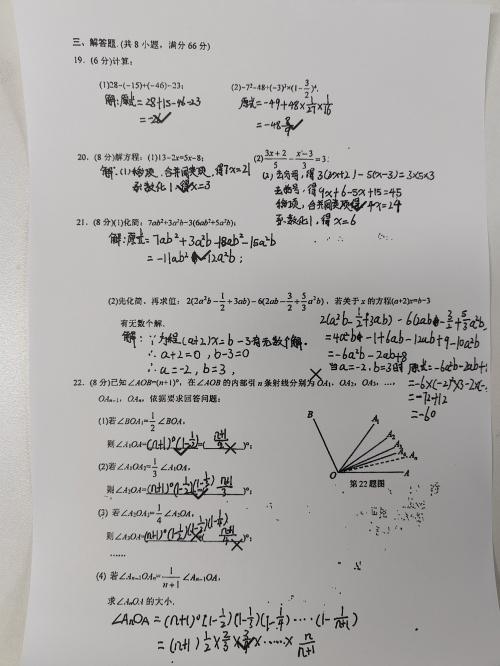 三、解答题.(共8小题，满分66分)
19.(6分)计算：
(1)28-(-15)+(-46)-23； (2)-7²-48÷(-3)³×(1-3/2)⁴.
解:原式=28+15-46-23 原式=-49+48×1/27×1/16
=-26 =-48 8/9
20.(8分)解方程：(1)13-2x=5x-8； (2)(3x+2)/5-(x-3)/3=3；
解:(1)移项,合并同类项,得7x=21 (2)去分母,得3(3x+2)-5(x-3)=3×5×3
系数化1,得x=3 去括号,得9x+6-5x+15=45
移项,合并同类项,得4x=24
系数化1,得x=6
21.(8分)(1)化简：7ab²+3a²b-3(6ab²+5a²b)；
解:原式=7ab²+3a²b-18ab²-15a²b
=-11ab²-12a²b;
(2)先化简，再求值：2(2a²b-1/2+3ab)-6(2ab-3/2+5/3a²b)，若关于x的方程(a+2)x=b-3
有无数个解.
解:∵方程(a+2)x=b-3有无数个解.
∴a+2=0,b-3=0
∴a=-2,b=3,
2(2a²b-1/2+3ab)-6(2ab-3/2+5/3a²b)
=4a²b-1+6ab-12ab+9-10a²b
=-6a²b-2ab+8
当a=-2,b=3时 原式=-6a²b-2ab+
=-6×(-2)²×3-2×(-
=-72+12
=-60
22.(8分)已知∠AOB=(n+1)°，在∠AOB的内部引n条射线分别为OA₁，OA₂，OA₃，…，
OAₙ₋₁，OAₙ，依据要求回答问题：
(1)若∠BOA₁=1/2∠BOA，
则∠A₁OA=(n+1)°(1-1/2)=( )°；
(2)若∠A₁OA₂=1/3∠A₁OA，
则∠A₂OA=(n+1)°(1-1/2)(1-1/3) (n+1)/3 )°；
(3) 若∠A₂OA₃=1/4∠A₂OA，
则∠A₃OA=(n+1)°(1-1/2)(1-1/3)(1-1/4) )°；
……
(4) 若∠Aₙ₋₁OAₙ=1/(n+1)∠Aₙ₋₁OA，
求∠AₙOA的大小.
∠AₙOA=(n+1)°(1-1/2)(1-1/3)(1-1/4)……(1-1/(n+1))
=(n+1)1/2×2/3×3/4×……×n/(n+1)
B
A₁
A₂
A₃
Aₙ
O
A
第22题图